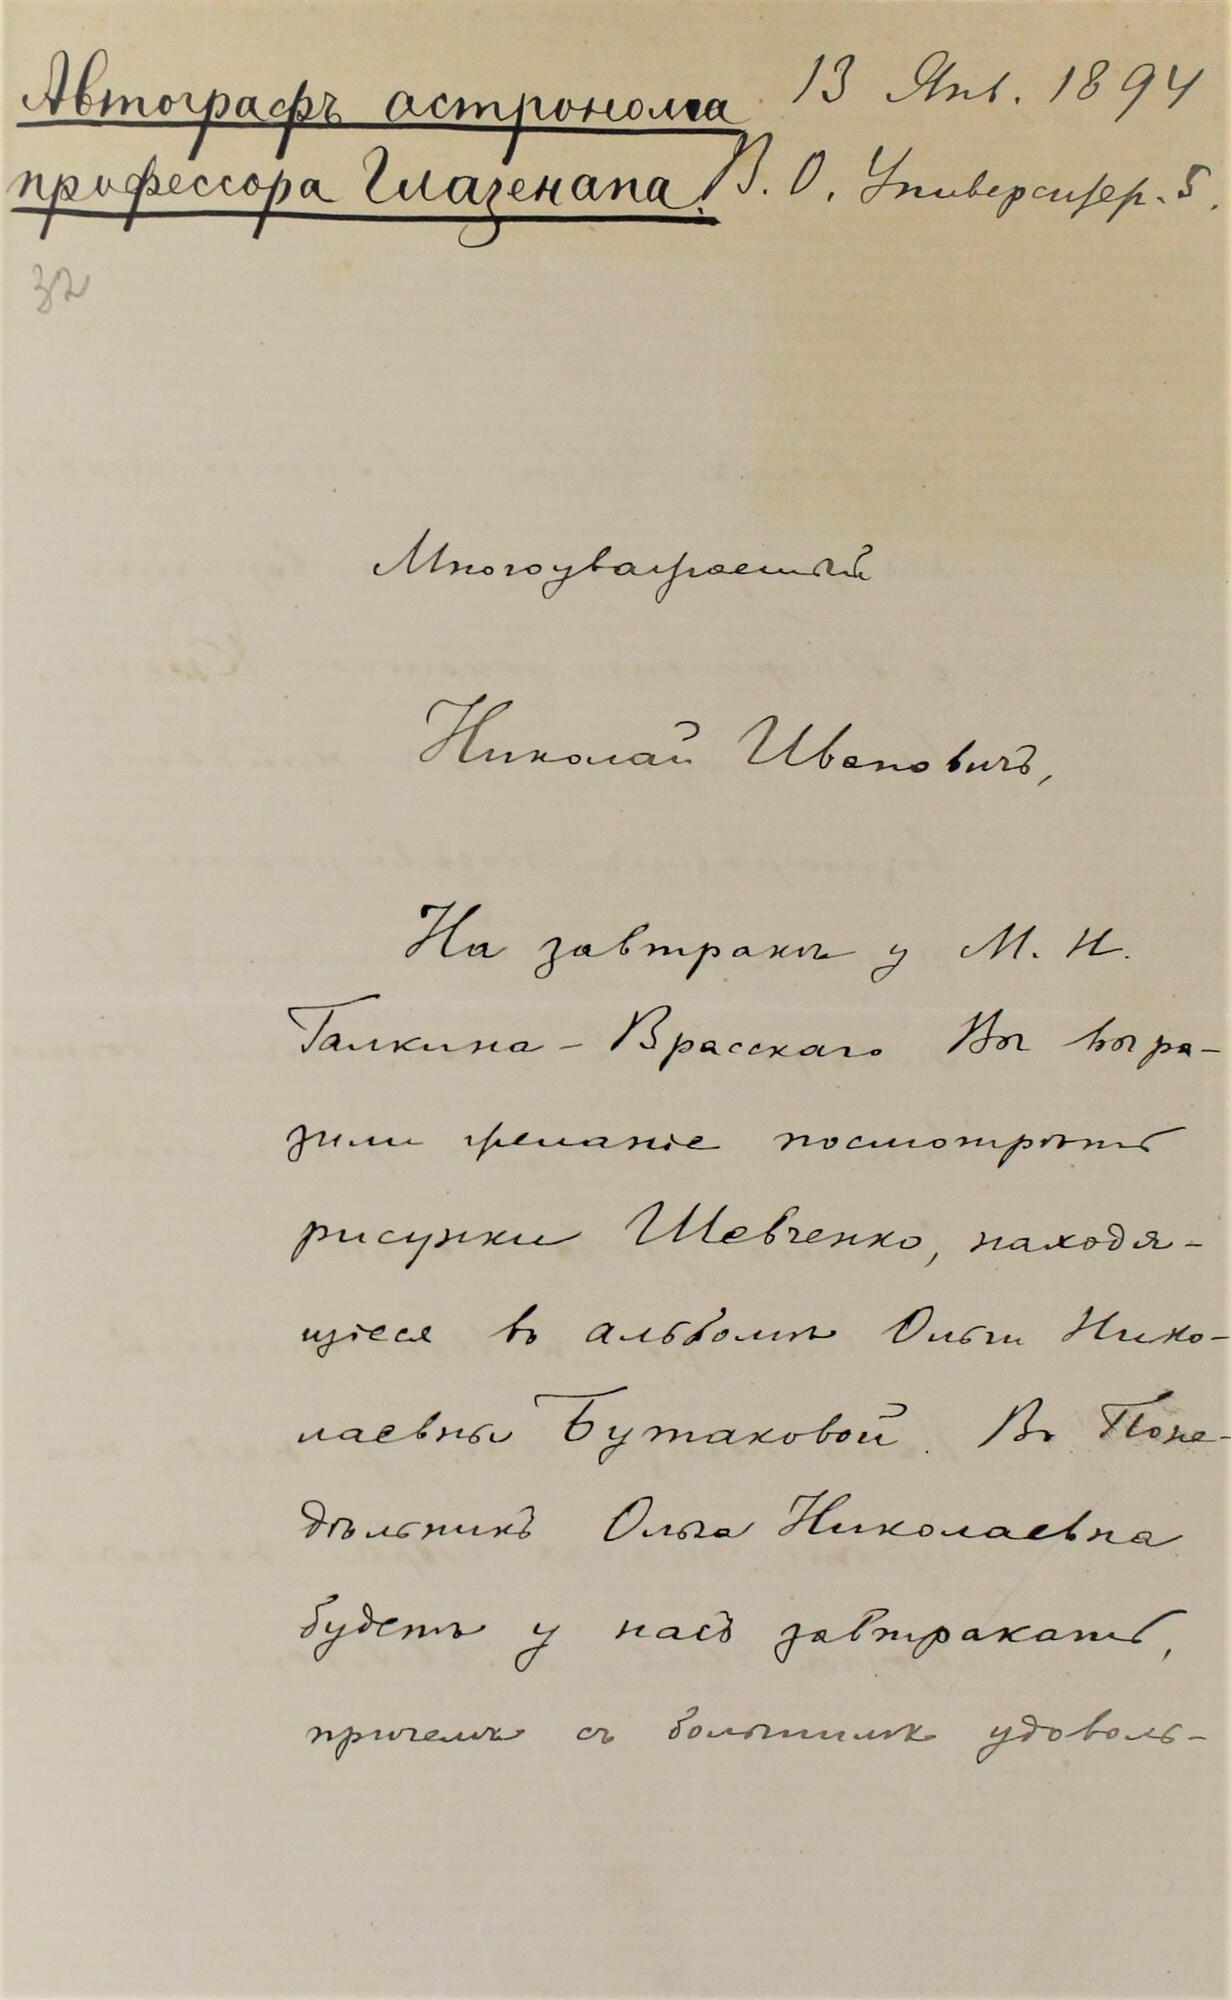 Автографъ астронома
профессора Глазенапа.
13 Янв. 1894
В. О. Университ. 5.
32
Многоуважаемый
Николай Ивановичъ,
На завтракѣ у М. Н.
Галкина-Врасскаго Вы выра-
зили желаніе посмотрѣть
рисунки Шевченко, находя-
щіеся въ альбомѣ Ольги Нико-
лаевны Бутаковой. Въ Поне-
дѣльникъ Ольга Николаевна
будетъ у насъ завтракать,
причемъ съ большимъ удоволь-